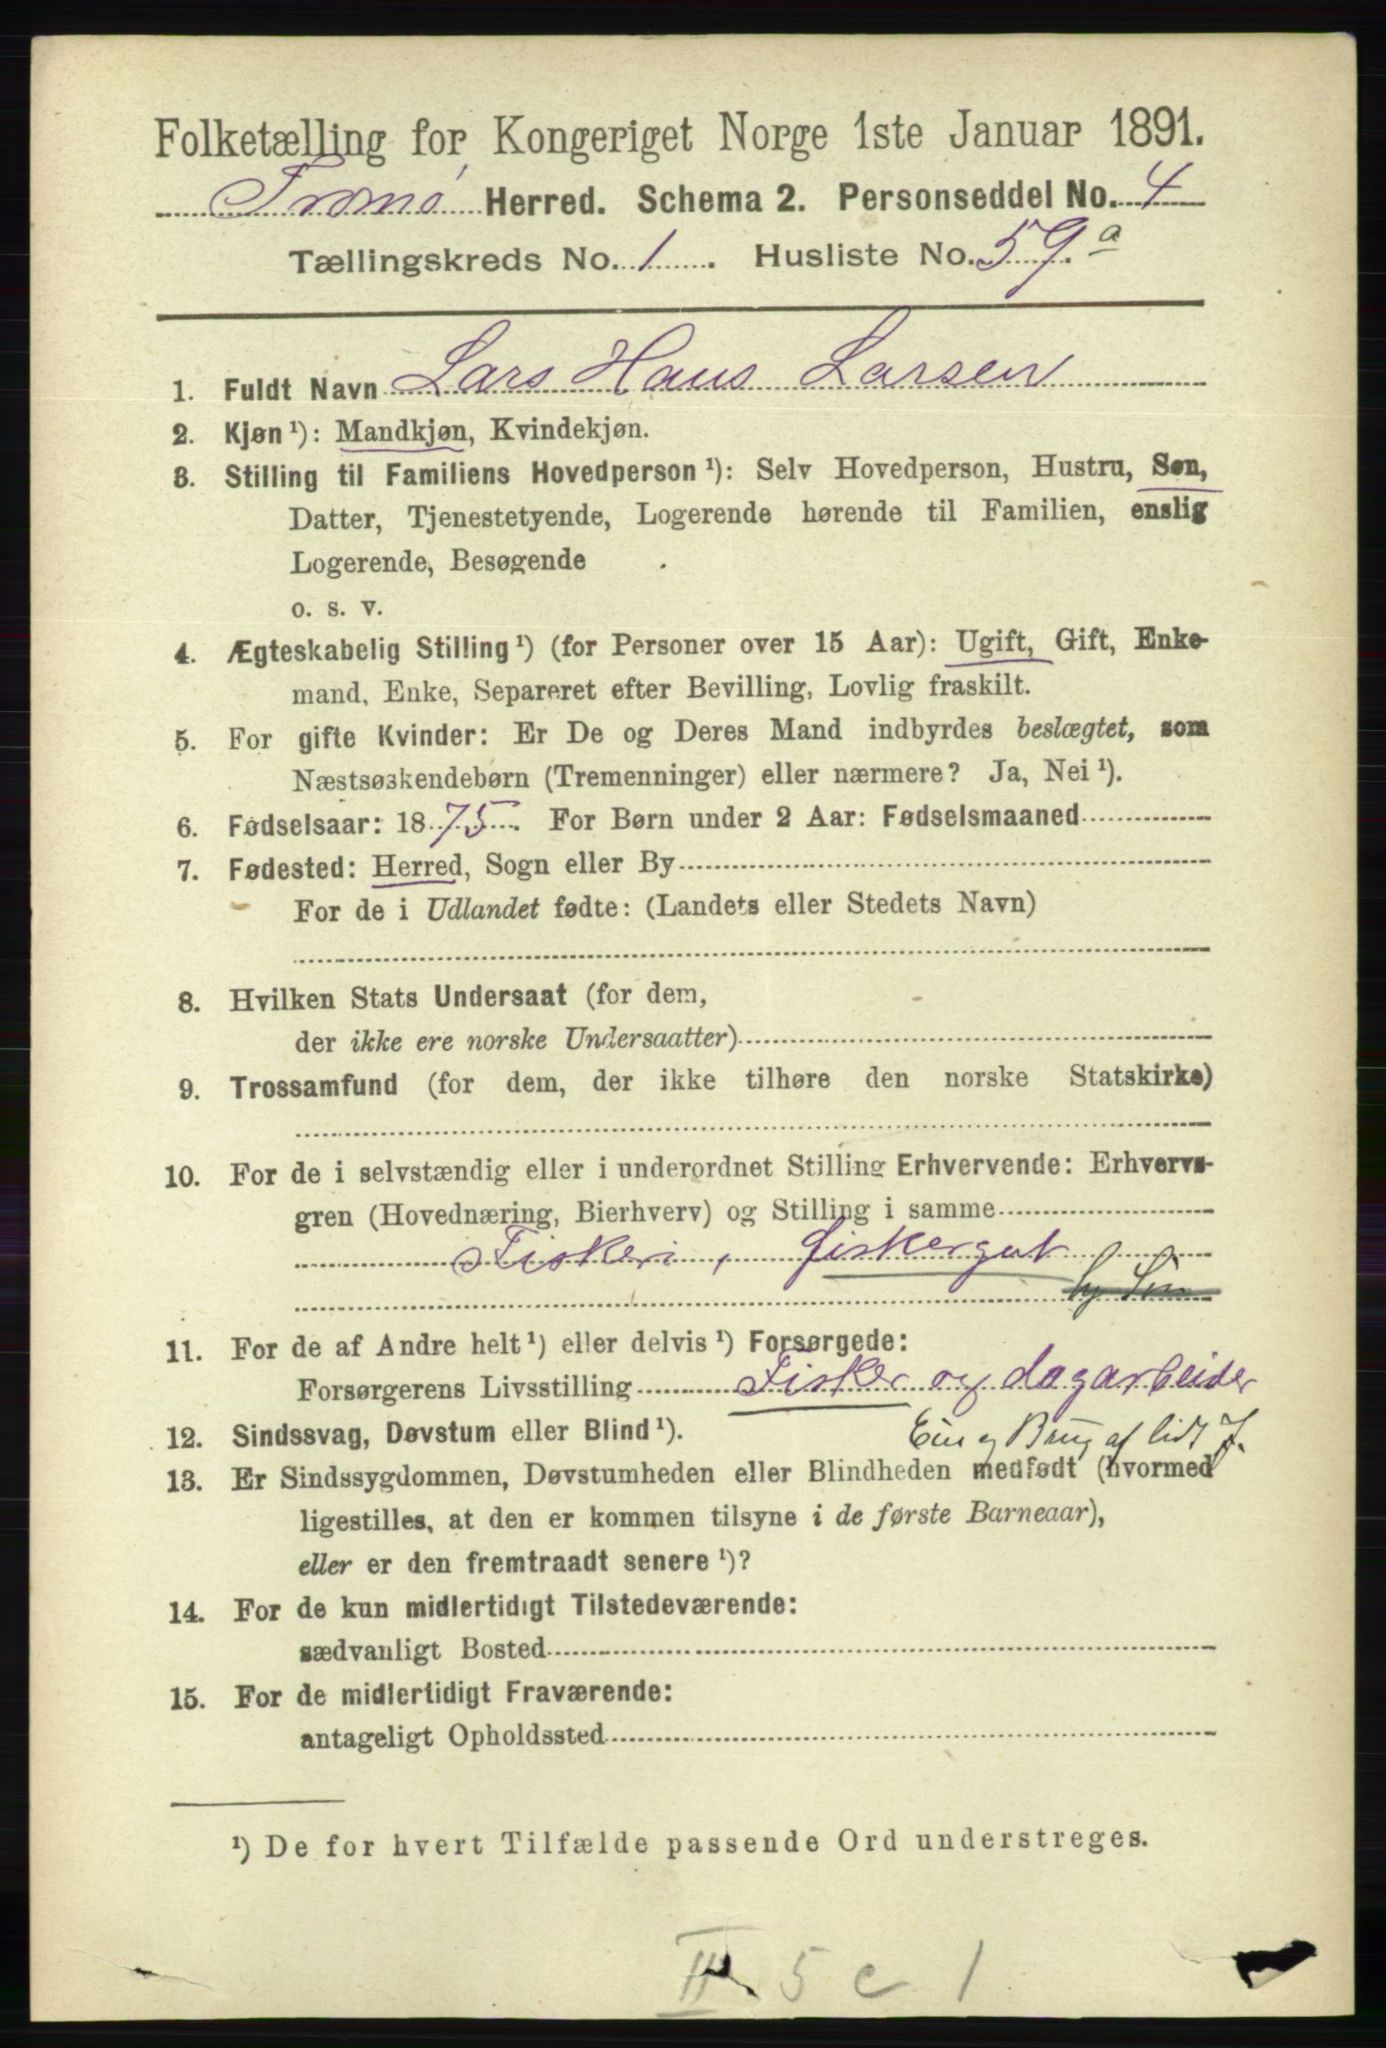 Folketælling for Kongeriget Norge 1ste Januar 1891.
Tromø Herred. Schema 2. Personseddel No. 4
Tællingskreds No. 1. Husliste No. 59.a
1. Fuldt Navn Lars Hans Larsen
2. Kjøn ¹): Mandkjøn, Kvindekjøn.
3. Stilling til Familiens Hovedperson ¹): Selv Hovedperson, Hustru, Søn,
Datter, Tjenestetyende, Logerende hørende til Familien, enslig
Logerende, Besøgende
o. s. v.
4. Ægteskabelig Stilling ¹) (for Personer over 15 Aar): Ugift, Gift, Enke-
mand, Enke, Separeret efter Bevilling, Lovlig fraskilt.
5. For gifte Kvinder: Er De og Deres Mand indbyrdes beslægtet, som
Næstsøskendebørn (Tremenninger) eller nærmere? Ja, Nei ¹).
6. Fødselsaar: 1875. For Børn under 2 Aar: Fødselsmaaned
7. Fødested: Herred, Sogn eller By
For de i Udlandet fødte: (Landets eller Stedets Navn)
8. Hvilken Stats Undersaat (for dem,
der ikke ere norske Undersaatter)
9. Trossamfund (for dem, der ikke tilhøre den norske Statskirke)
10. For de i selvstændig eller i underordnet Stilling Erhvervende: Erhvervs-
gren (Hovednæring, Bierhverv) og Stilling i samme
Fiskeri, fiskergut
11. For de af Andre helt ¹) eller delvis ¹) Forsørgede:
Forsørgerens Livsstilling Fisker og dagarbeider
12. Sindssvag, Døvstum eller Blind ¹). Eier og Brug af lidt J.
13. Er Sindssygdommen, Døvstumheden eller Blindheden medfødt (hvormed
ligestilles, at den er kommen tilsyne i de første Barneaar),
eller er den fremtraadt senere ¹)?
14. For de kun midlertidigt Tilstedeværende:
sædvanligt Bosted
15. For de midlertidigt Fraværende:
antageligt Opholdssted
¹) De for hvert Tilfælde passende Ord understreges.
II 5 c 1